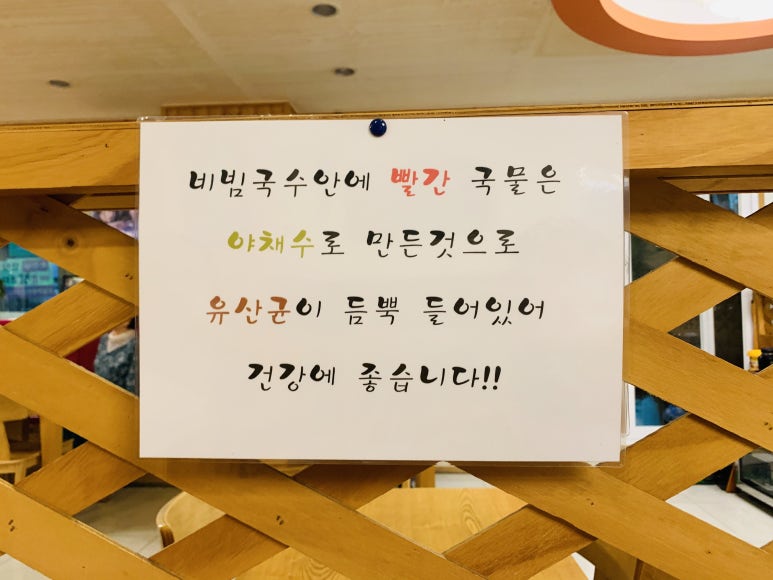 비빔국수안에 빨간 국물은
야채수로 만든것으로
유산균이 듬뿍 들어있어
건강에 좋습니다!!